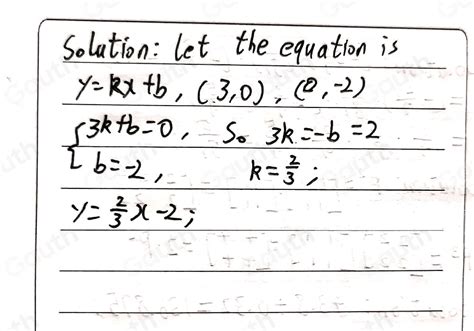 Solution: let the equation is
y=kx+b, (3,0), (0,-2)
{3k+b=0, So 3k=-b=2
b=-2, k=2/3;
y=2/3x-2;